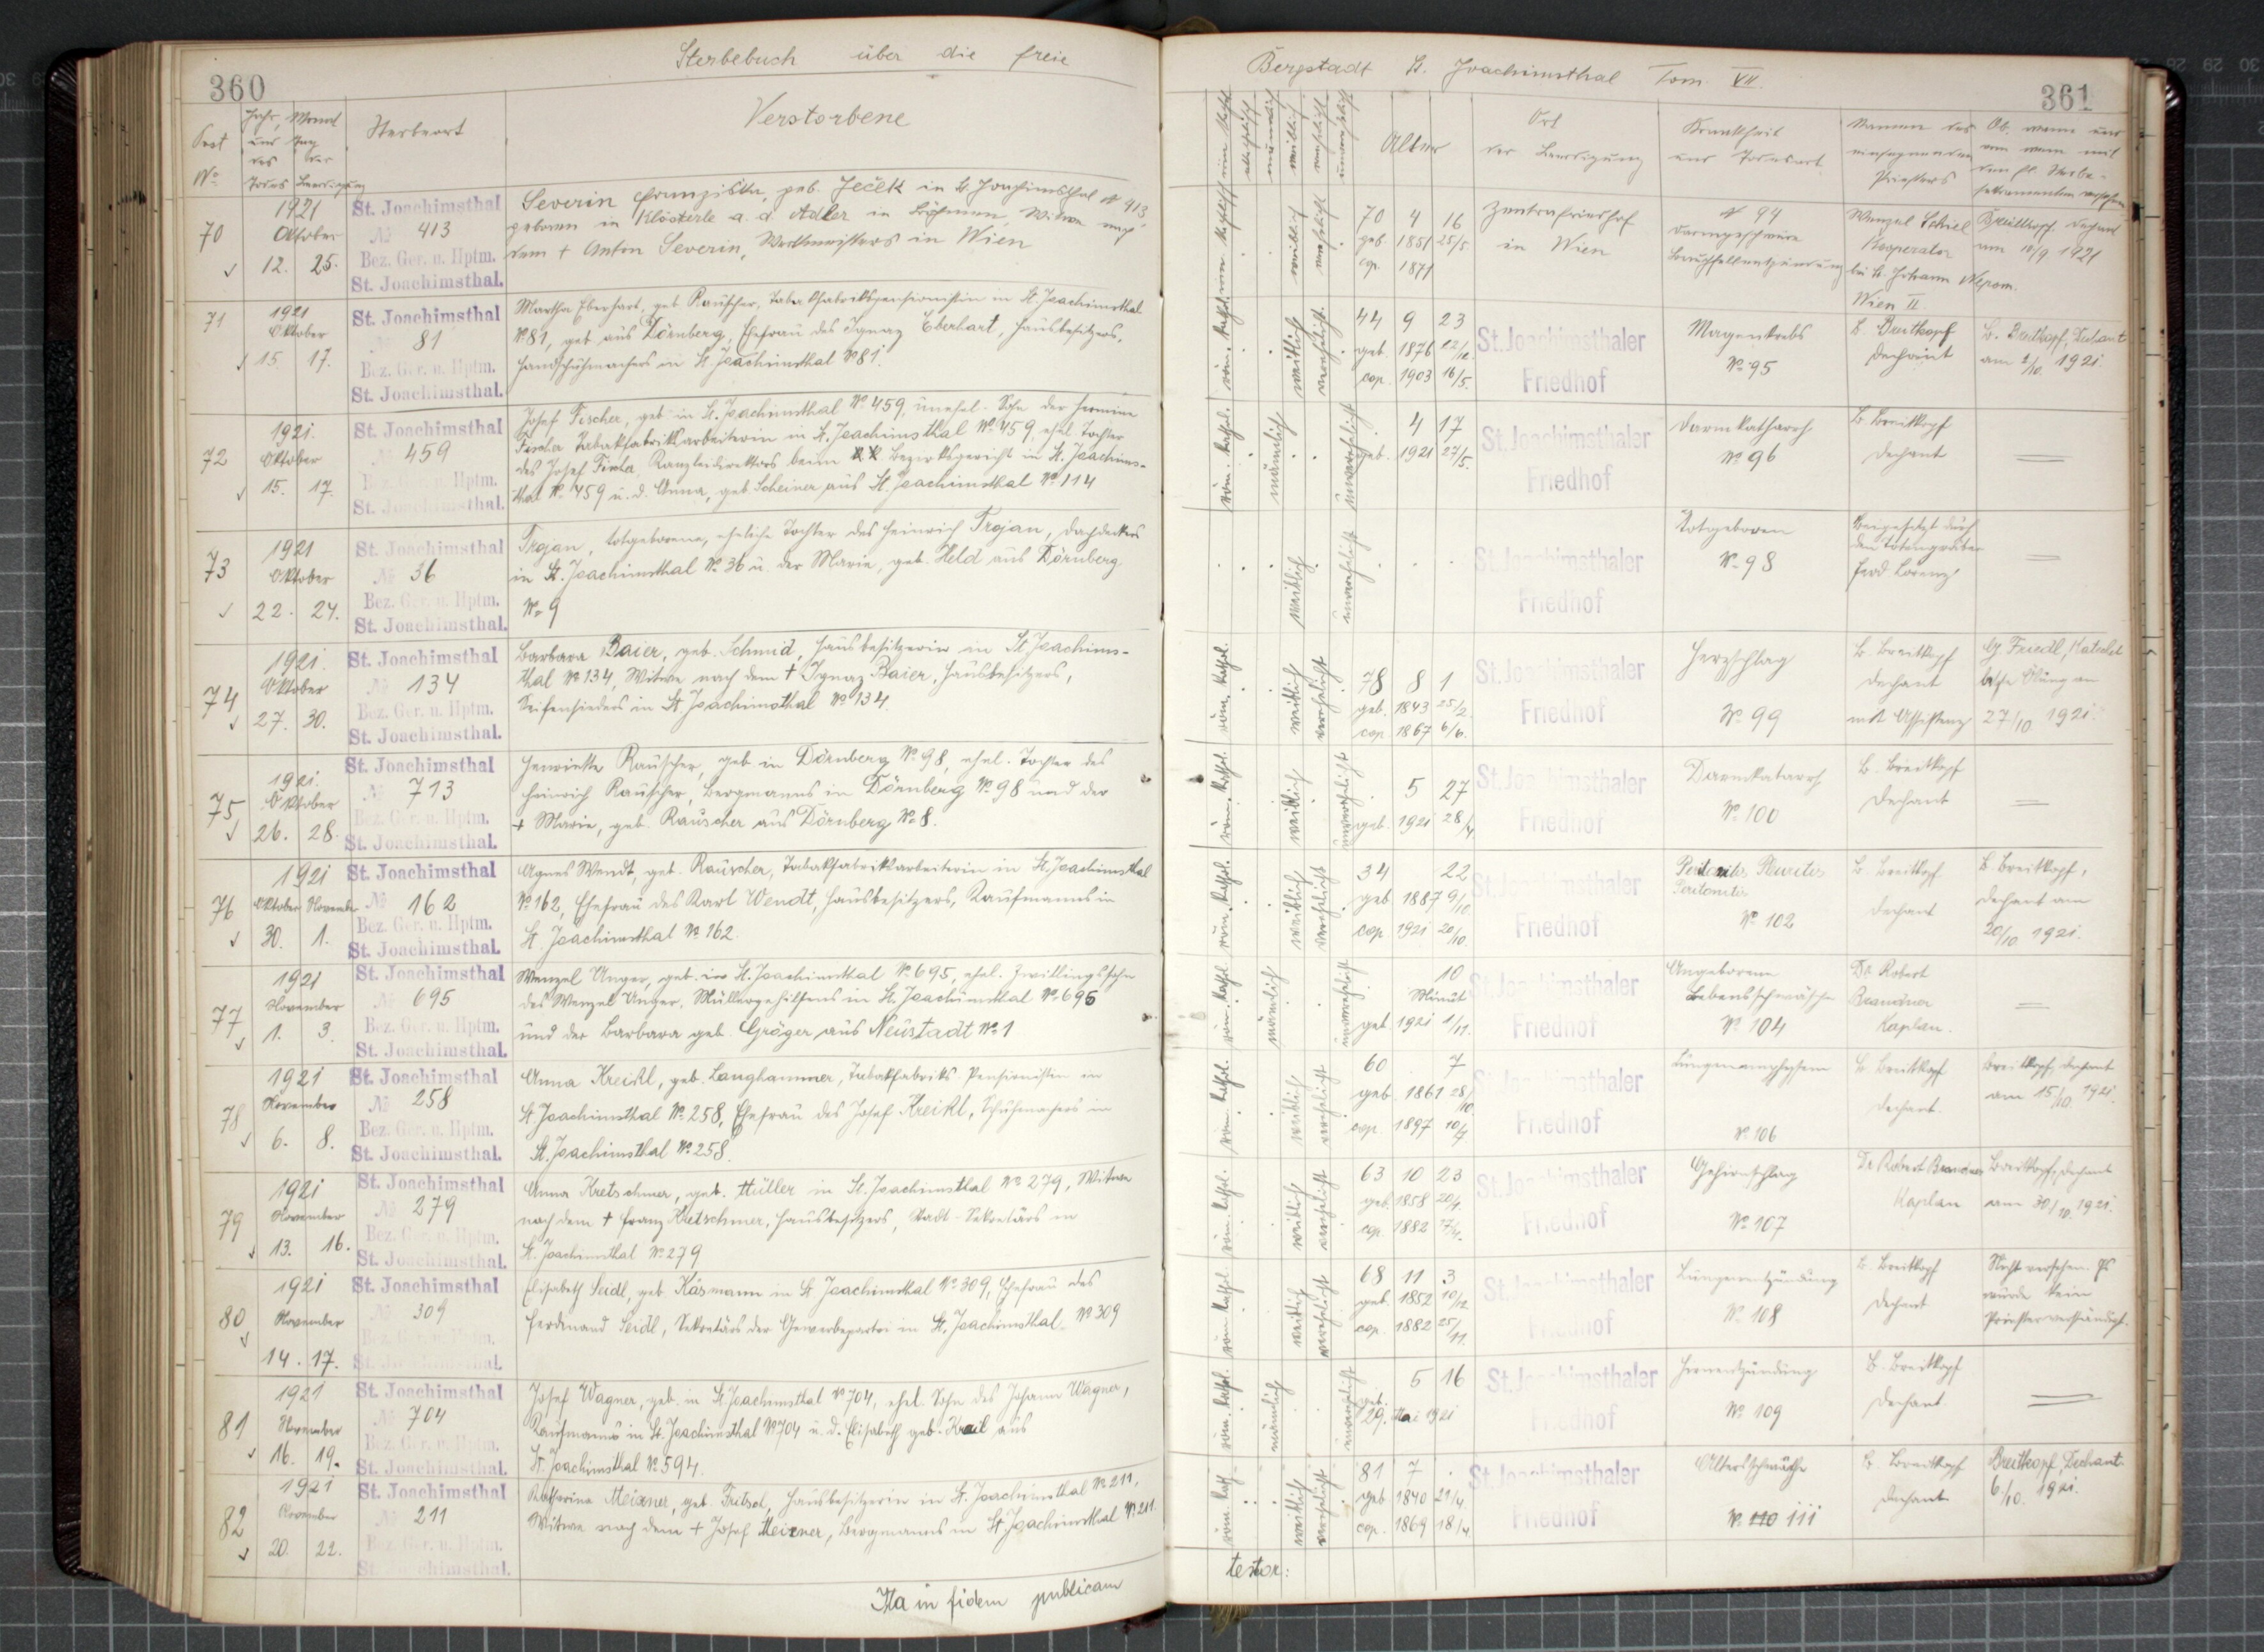 360
Sterbebuch über die freie
Post No
Jahr und des Todes
Monat Tag der Beerdigung
Sterbeort
Verstorbene
70
1921
Oktober
12. 25.
St. Joachimsthal
No 413
Bez. Ger. u. Hptm.
St. Joachimsthal.
Severin Franziska, geb. Ječek in St. Joachimsthal No 413
geboren in Klösterle a. d. Adler in Böhmen, Witwe nach
dem + Anton Severin, Werkmeisters in Wien
71
1921
Oktober
15. 17.
St. Joachimsthal
No 81
Bez. Ger. u. Hptm.
St. Joachimsthal.
Martha Eberhart, geb. Rauscher, Tabakfabrikspensionistin in St. Joachimsthal
No 81, geb aus Dörnberg, Ehefrau des Ignaz Eberhart, Hausbesitzers,
Handschuhmachers in St. Joachimsthal No 81.
72
1921.
Oktober
15. 17.
St. Joachimsthal
No 459
Bez. Ger. u. Hptm.
St. Joachimsthal.
Josef Fischer, geb in St. Joachimsthal No 459, unehel. Sohn der Hermine
Fischer Tabakfabriksarbeiterin in St. Joachimsthal No 459, ehel. Tochter
des Josef Fischer Kanzleidirektors beim Bezirksgericht in St. Joachims-
thal No 459 u. d. Anna, geb Scheiner aus St. Joachimsthal No 114
73
1921
Oktober
22. 24.
St. Joachimsthal
No 36
Bez. Ger. u. Hptm.
St. Joachimsthal.
Trojan, totgeborene, eheliche Tochter des Heinrich Trojan, Dachdeckers
in St. Joachimsthal No 36 u. der Marie, geb. Held aus Dörnberg
No 9
74
1921.
Oktober
27. 30.
St. Joachimsthal
No 134
Bez. Ger. u. Hptm.
St. Joachimsthal.
Barbara Baier, geb. Schmid, Hausbesitzerin in St. Joachims-
thal No 134, Witwe nach dem + Ignaz Baier, Hausbesitzers,
Seifensieders in St. Joachimsthal No 134.
75
1921.
Oktober
26. 28.
St. Joachimsthal
No 713
Bez. Ger. u. Hptm.
St. Joachimsthal.
Henriette Rauscher, geb in Dörnberg No 98, ehel. Tochter des
Heinrich Rauscher, Bergmanns in Dörnberg No 98 und der
+ Marie, geb. Rauscher aus Dörnberg No 8.
76
1921
Oktober November
30. 1.
St. Joachimsthal
No 162
Bez. Ger. u. Hptm.
St. Joachimsthal.
Agnes Wendt, geb. Rauscher, Tabakfabriksarbeiterin in St. Joachimsthal
No 162, Ehefrau des Karl Wendt, Hausbesitzers, Kaufmanns in
St. Joachimsthal No 162.
77
1921
November
1. 3.
St. Joachimsthal
No 695
Bez. Ger. u. Hptm.
St. Joachimsthal.
Wenzel Unger, geb. in St. Joachimsthal No 695, ehel. Zwillingssohn
des Wenzel Unger, Müllergehilfens in St. Joachimsthal No 695
und der Barbara geb. Gröger aus Neustadt No 1
78
1921
November
6. 8.
St. Joachimsthal
No 258
Bez. Ger. u. Hptm.
St. Joachimsthal.
Anna Kreikl, geb. Langhammer, Tabakfabriks Pensionistin in
St. Joachimsthal No 258, Ehefrau des Josef Kreikl, Schuhmachers in
St. Joachimsthal No 258.
79
1921
November
13. 16.
St. Joachimsthal
No 279
Bez. Ger. u. Hptm.
St. Joachimsthal.
Anna Kretschmer, geb. Müller in St. Joachimsthal No 279, Witwe
nach dem + Franz Kretschmer, Hausbesitzers, Stadt-Sekretärs in
St. Joachimsthal No 279
80
1921
November
14. 17.
St. Joachimsthal
No 309
Bez. Ger. u. Hptm.
St. Joachimsthal.
Elisabeth Seidl, geb. Käsmann in St. Joachimsthal No 309, Ehefrau des
Ferdinand Seidl, Sekretärs der Gewerbepartei in St. Joachimsthal No 309
81
1921
November
16. 19.
St. Joachimsthal
No 704
Bez. Ger. u. Hptm.
St. Joachimsthal.
Josef Wagner, geb. in St. Joachimsthal No 704, ehel. Sohn des Johann Wagner,
Kaufmanns in St. Joachimsthal No 704 u. d. Elisabeth geb. Krail aus
St. Joachimsthal No 594.
82
1921
November
20. 22.
St. Joachimsthal
No 211
Bez. Ger. u. Hptm.
St. Joachimsthal.
Katharina Meixner, geb. Fritsch, Hausbesitzerin in St. Joachimsthal No 211,
Witwe nach dem + Josef Meixner, Bergmanns in St. Joachimsthal No 211.
Ita in fidem publicam
Bergstadt St. Joachimsthal Tom VII.
361
männlich weiblich verehelicht unverehelicht
Alter
Ort der Beerdigung
Krankheit und Todesart
Namen des einsegnenden Priesters
Ob, wann und von wem mit den hl. Sterbe-
sakramenten versehen
weiblich verehelicht
70 4 16
geb. 1851 25/5
cop. 1871
Zentralfriedhof
in Wien
No 94
Darmgeschwüre
Bauchfellentzündung
Wenzel Schiel
Kooperator
bei St. Johann Nepom.
Wien II
Breitkopf Dechant
am 10/9 1921
röm. kathol. weiblich verehelicht
44 9 23
geb. 1876 22/12.
cop. 1903 16/5.
St. Joachimsthaler
Friedhof
Magenkrebs
No 95
B. Breitkopf
Dechant
B. Breitkopf, Dechant
am 2/10. 1921.
röm. kathol. männlich unverehelicht
4 17
geb. 1921 27/5.
St. Joachimsthaler
Friedhof
Darmkatharrh
No 96
B Breitkopf
Dechant
weiblich unverehelicht
St. Joachimsthaler
Friedhof
Totgeboren
No 98
Beigesetzt durch
den Totengräber
Ferd Lorenz
röm. kathol. weiblich verehelicht
78 8 1
geb. 1843 25/2.
cop. 1867 6/6.
St. Joachimsthaler
Friedhof
Herzschlag
No 99
B. Breitkopf
Dechant
mit Assistenz
G Friedl, Katechet
letzte Ölung am
27/10 1921.
röm. kathol. weiblich unverehelicht
5 27
geb. 1921 28/4
St. Joachimsthaler
Friedhof
Darmkatarrh
No 100
B. Breitkopf
Dechant
röm. kathol. weiblich verehelicht
34 22
geb. 1887 9/10.
cop. 1921 20/10.
St. Joachimsthaler
Friedhof
Pleuritis
Peritonitis
No 102
B. Breitkopf
Dechant
B. Breitkopf,
Dechant am
20/10. 1921.
röm. kathol männlich unverehelicht
10
Minut
geb. 1921 1/11.
St. Joachimsthaler
Friedhof
Angeborene
Lebensschwäche
No 104
Dr. Robert
Brandner
Kaplan.
röm. kathol. weiblich verehelicht
60 7
geb. 1861 28/10
cop. 1897 10/7
St. Joachimsthaler
Friedhof
Lungenemphysem
No 106
B Breitkopf
Dechant.
Breitkopf, Dechant
am 15/10. 1921.
röm. kathol. weiblich verehelicht
63 10 23
geb. 1858 20/1.
cop. 1882 17/4.
St. Joachimsthaler
Friedhof
Gehirnschlag
No 107
Dr Robert Brandner
Kaplan
Breitkopf, Dechant
am 30/10. 1921.
röm kathol. weiblich verehelicht
68 11 3
geb. 1852 10/12.
cop. 1882 25/11.
St. Joachimsthaler
Friedhof
Lungenentzündung
No 108
B. Breitkopf
Dechant.
Nicht versehen. Es
wurde kein
Priester verständigt.
röm. kathol. männlich unverehelicht
5 16
geb. 29. Mai 1921
St. Joachimsthaler
Friedhof
Hirnentzündung
No 109
B. Breitkopf
Dechant.
röm kath weiblich verehelicht
81 7
geb 1840 21/4.
cop. 1869 18/4.
St. Joachimsthaler
Friedhof
Altersschwäche
No 110 111
B. Breitkopf
Dechant
Breitkopf, Dechant.
6/10. 1921.
testor: